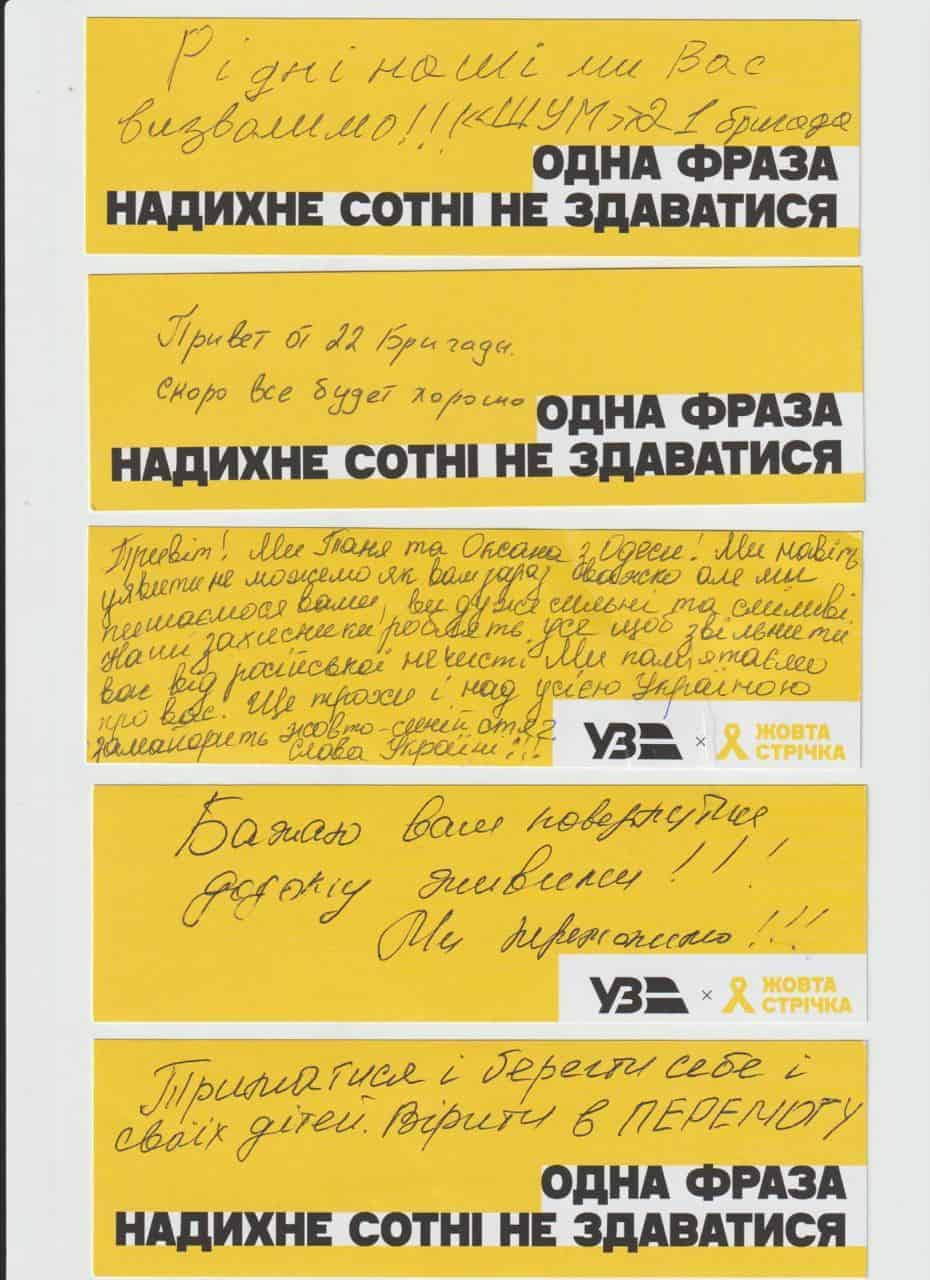 Рідні наші ми Вас
визволимо!!! «ШУМ» 21 бригада
ОДНА ФРАЗА
НАДИХНЕ СОТНІ НЕ ЗДАВАТИСЯ
Привет от 22 Бригады.
Скоро все будет хорошо
ОДНА ФРАЗА
НАДИХНЕ СОТНІ НЕ ЗДАВАТИСЯ
Привіт! Ми Таня та Оксана з Одеси! Ми навіть
уявити не можемо як вам зараз важко але мы
пишаємося вами, ви дуже сильні та сміливі.
Наши захисники роблять усе щоб звільнити
вас від російської нечисті Ми памʼятаємо
про вас. Ще трохи і над усією Україною
замайорить жовто-синій стяг
Слава Україні!!!
УЗ × ЖОВТА
СТРІЧКА
Бажаю вам повернутися
додому живими!!!
Ми переможемо!!!
УЗ × ЖОВТА
СТРІЧКА
Триматися і берегти себе і
своїх дітей. Вірити в ПЕРЕМОГУ
ОДНА ФРАЗА
НАДИХНЕ СОТНІ НЕ ЗДАВАТИСЯ